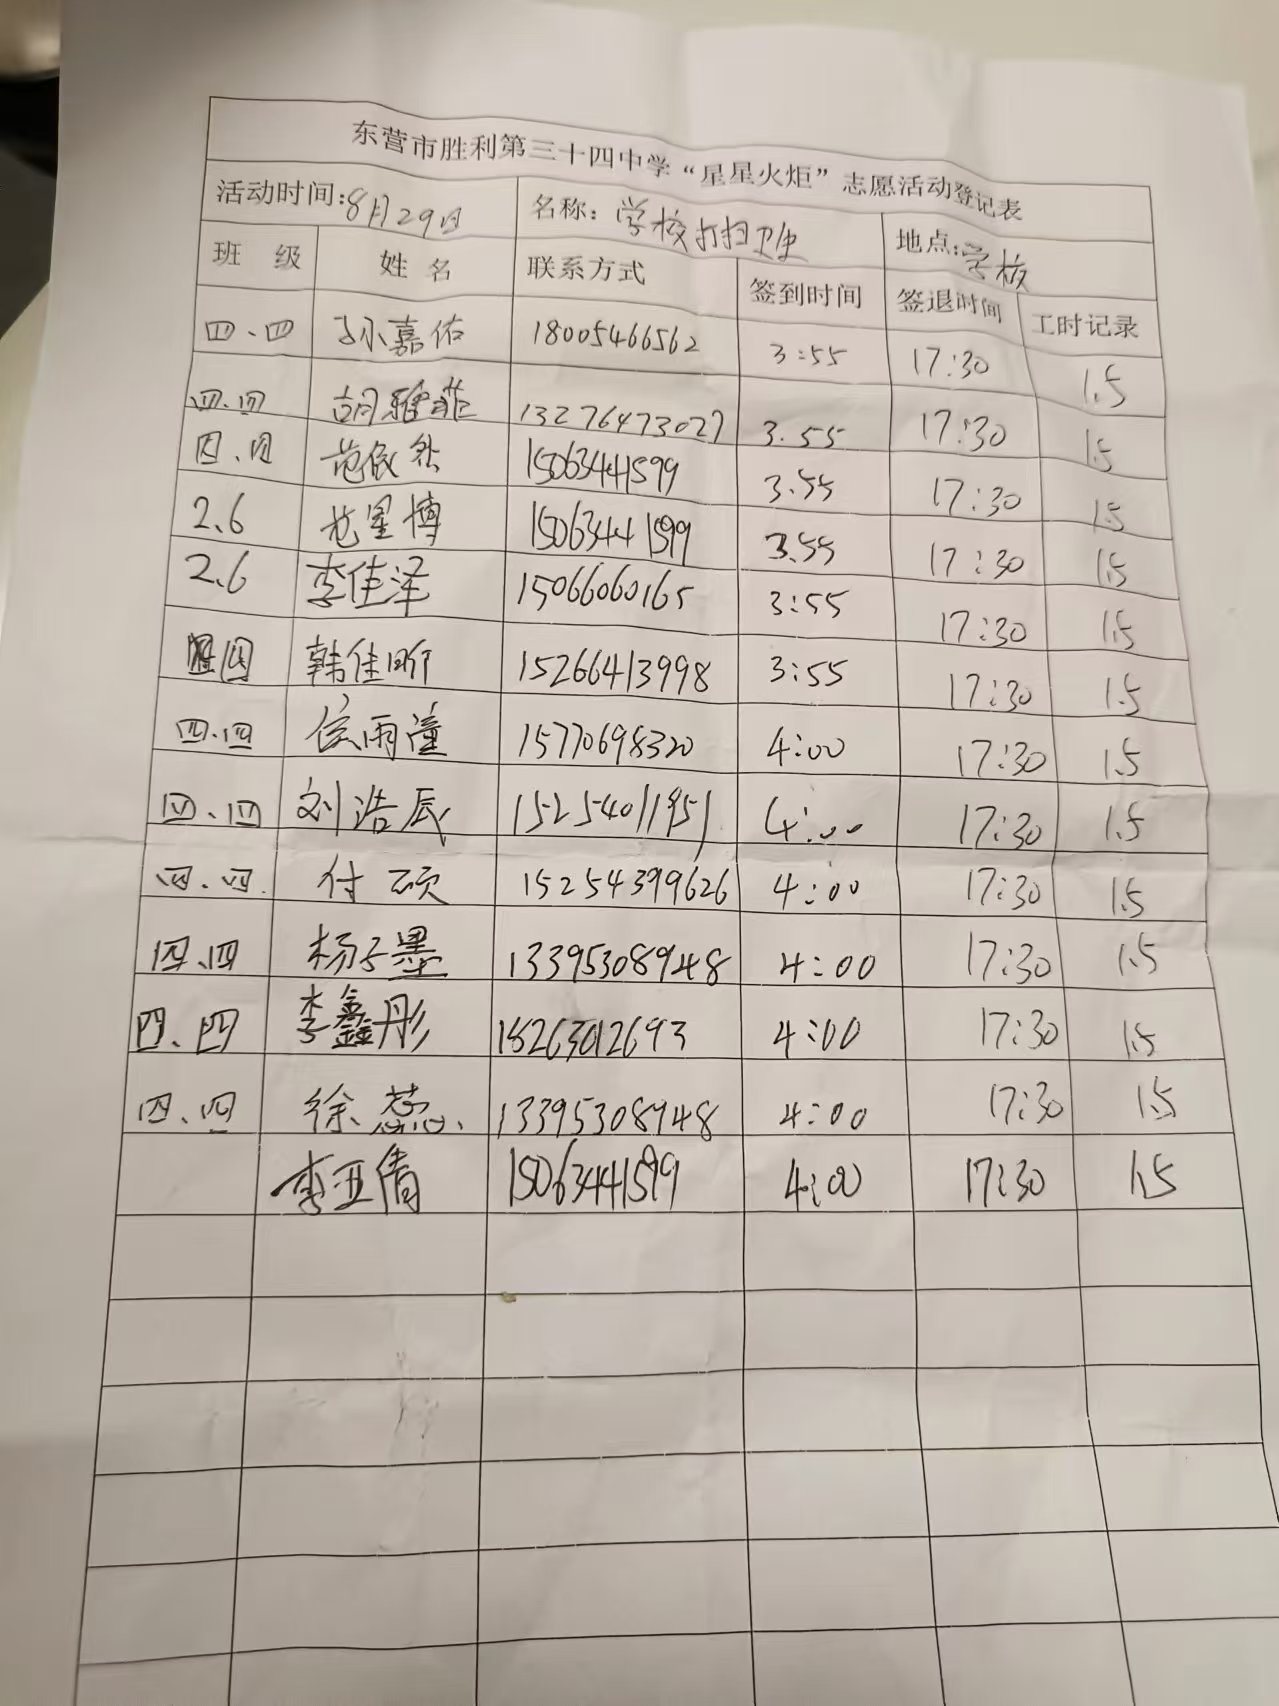 东营市胜利第三十四中学“星星火炬”志愿活动登记表
活动时间:8月29日 名称：学校打扫卫生 地点:学校
班 级 姓 名 联系方式 签到时间 签退时间 工时记录
四.四 孙嘉佑 18005466562 3:55 17:30 1.5
四.四 胡雅菲 13276473027 3.55 17:30 1.5
四.四 范依然 15063441599 3.55 17:30 1.5
2.6 范星博 15063441599 3.55 17:30 1.5
2.6 李佳泽 15066060165 3:55 17:30 1.5
四 韩佳昕 15266413998 3:55 17:30 1.5
四.四 侯雨潼 15770698320 4:00 17:30 1.5
四.四 刘浩辰 15254011951 4:00 17:30 1.5
四.四. 付硕 15254399626 4:00 17:30 1.5
四.四 杨子墨 13395308948 4:00 17:30 1.5
四.四 李鑫彤 18263012693 4:00 17:30 1.5
四.四 徐蕊 13395308948 4:00 17:30 1.5
李亚倩 15063441599 4:00 17:30 1.5